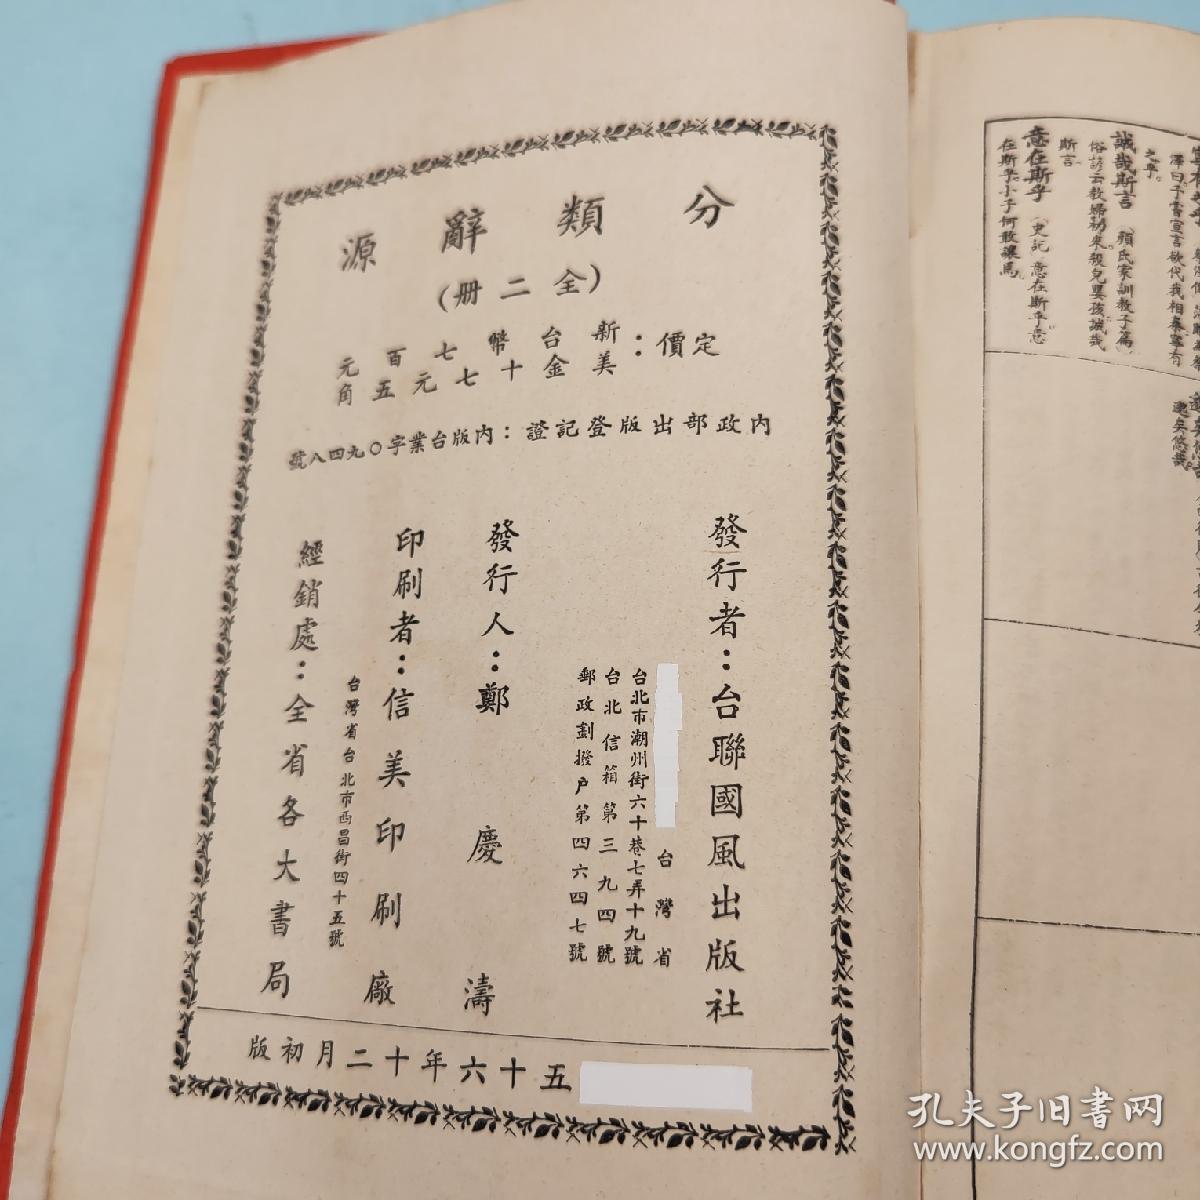 分類辭源
(全二册)
定價：新台幣七百元
美金十七元五角
內政部出版登記證：內版台業字〇九四八號
發行者：台聯國風出版社
台灣省
台北市潮州街六十巷七弄十九號
台北信箱第三九四號
郵政劃撥戶第四六四七號
發行人：鄭慶濤
印刷者：信美印刷廠
台灣省台北市西昌街四十五號
經銷處：全省各大書局
五十六年十二月初版
之乎。
誠哉斯言（顏氏家訓教子篇）
俗諺云教婦初來教兒嬰孩誠哉
斯言
意在斯乎（史記）意在斯乎意
在斯乎。小子何敢讓焉。
孔夫子旧書网
www.kongfz.com